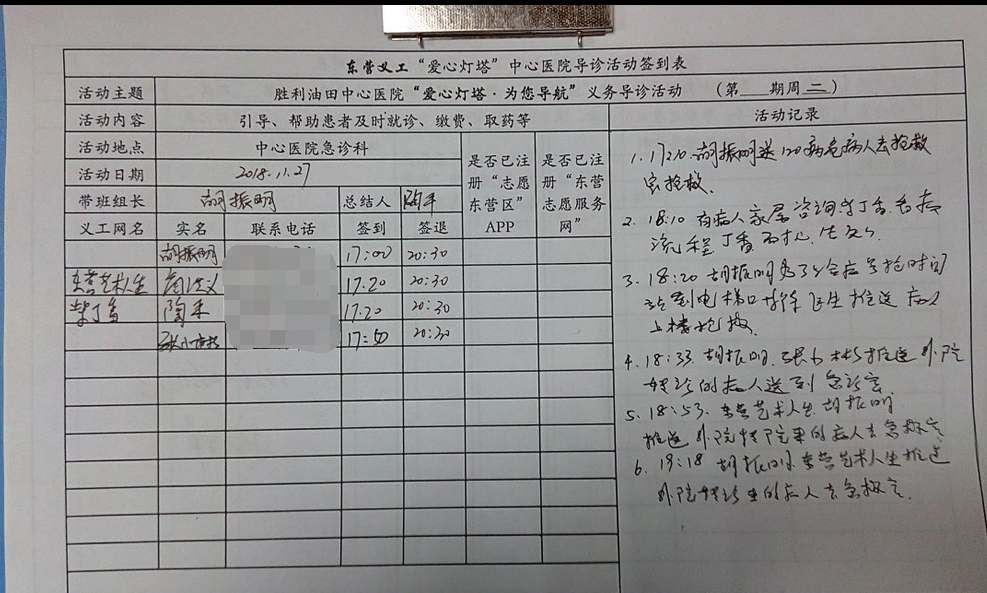 东营义工“爱心灯塔”中心医院导诊活动签到表
活动主题 胜利油田中心医院“爱心灯塔·为您导航”义务导诊活动 (第 期周二)
活动内容 引导、帮助患者及时就诊、缴费、取药等 活动记录
活动地点 中心医院急诊科 是否已注册“志愿东营区”APP 是否已注册“东营志愿服务网”
活动日期 2018.11.27
带班组长 胡振明 总结人 陶禾
义工网名 实名 联系电话 签到 签退
胡振明 17:00 20:30
东营艺术人生 17.20 20:30
紫丁香 陶禾 17.20 20:30
17:50 20:30
1. 17:20. 胡振明送120病危病人去抢救
室抢救.
2. 18:10 有病人家属咨询紫丁香看病
流程丁香
3. 18:20 胡振明为了给病号抢时间
站到电梯口 医生推送病人
上楼抢救.
4. 18:33. 胡振明. 推送外院
转诊的病人送到急诊室
5. 18:53. 东营艺术人生. 胡振明
推送外院转院来的病人去急救室
6. 19:18 胡振明. 东营艺术人生推送
外院转诊来的病人去急救室.